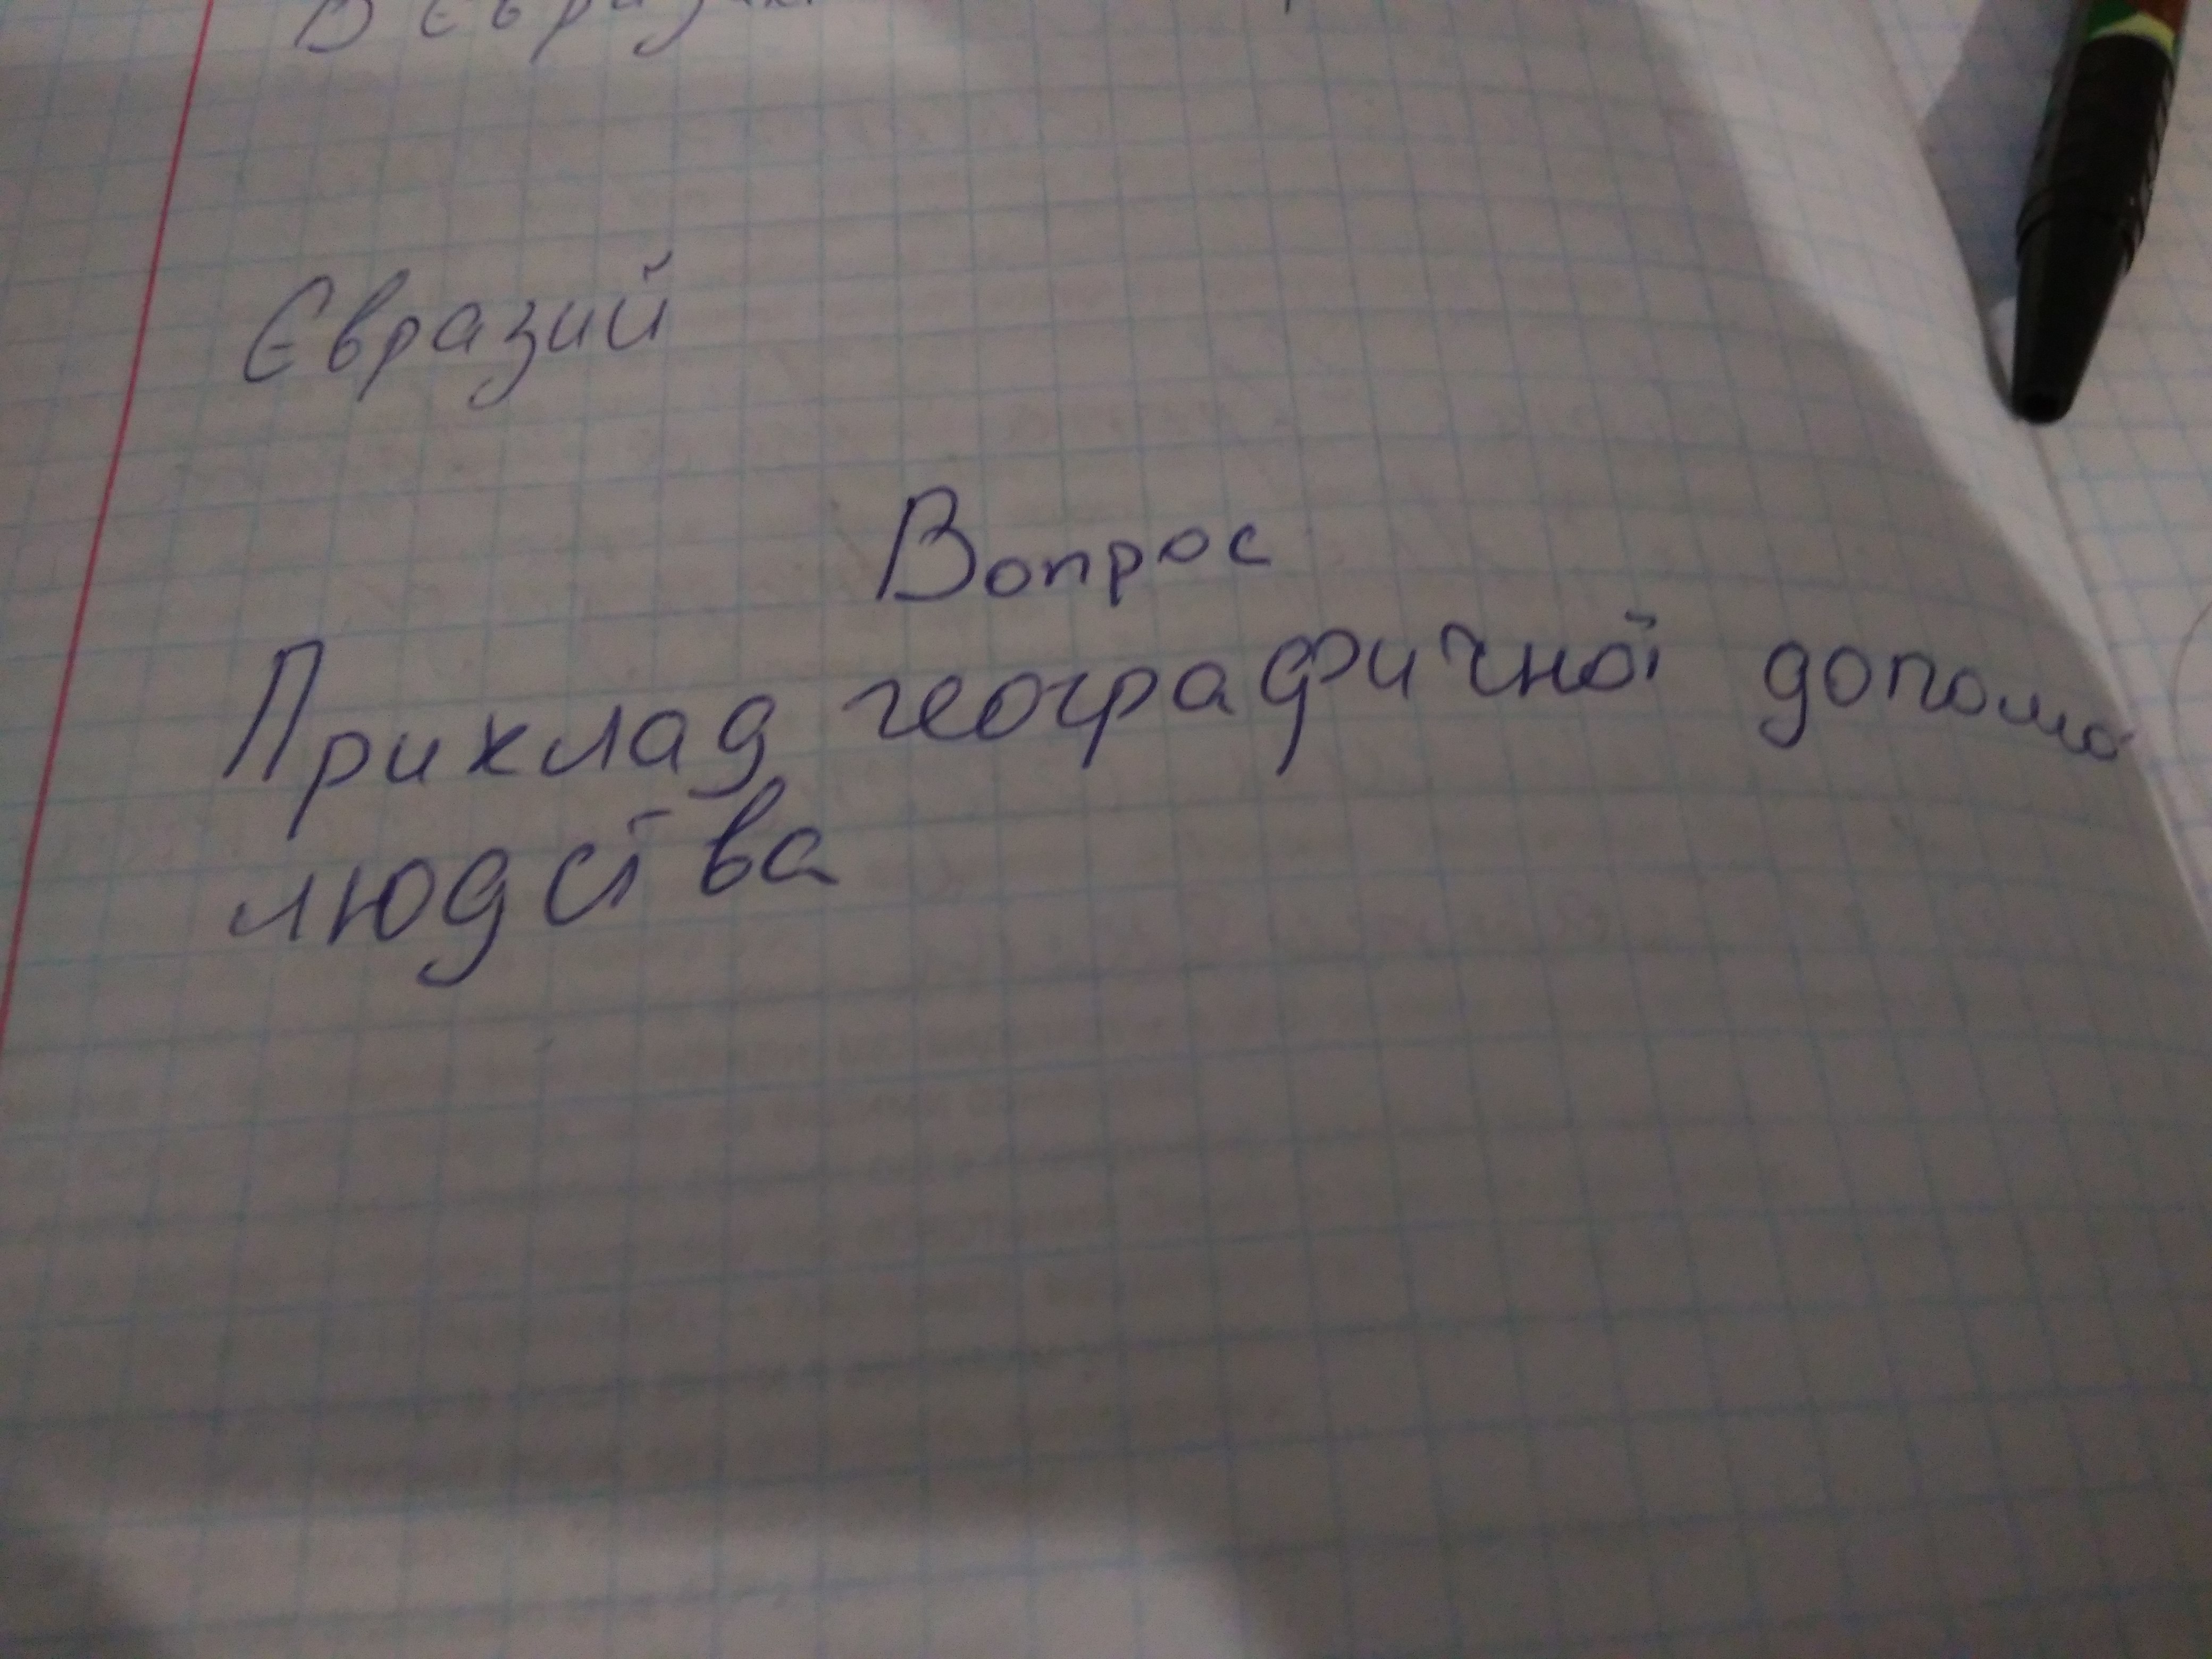 В Євразії
Євразий
Вопрос
Приклад географичної допомо
людства